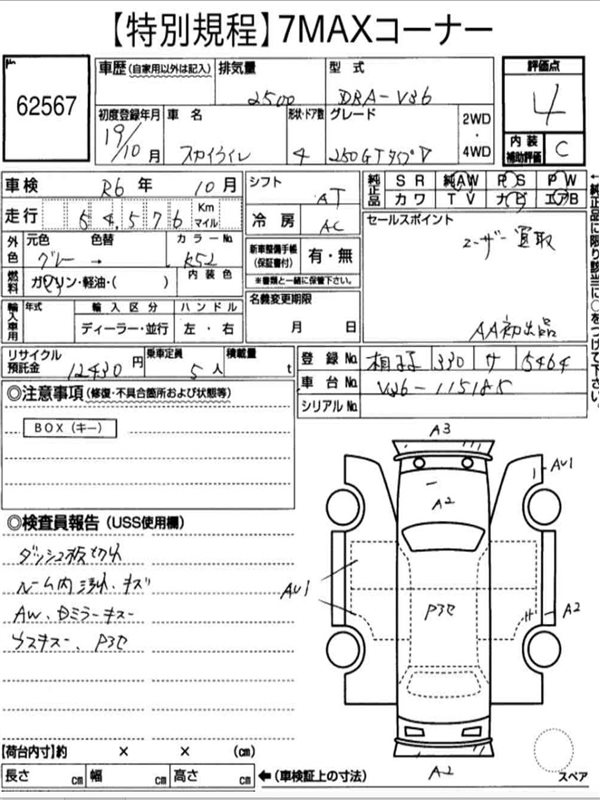 【特別規程】7MAXコーナー
62567
車歴 (自家用以外は記入) 排気量 2500 型式 DBA-V36
評価点 4
内装補助評価 C
初度登録年月 19/10月 車名 スカイライン 形状・ドア数 4 グレード 250GTタイプV 2WD・4WD
車検 R6年 10月
走行 54,576 Km マイル
外色 元色 グレー → 色替 カラーNo. K52
燃料 ガソリン・軽油・( ) 内装色
輸入車用 年式 輸入区分 ディーラー・並行 ハンドル 左・右
リサイクル預託金 12430円 乗車定員 5人 積載量 t
シフト AT
冷房 AC
新車整備手帳(保証書付) 有・無
※書類と一緒に保管下さい。
名義変更期限 月 日
純正品 SR 純AW PS PW
カワ TV ナビ エアB
セールスポイント
ユーザー買取
AA初出品
←純正品に限り該当に○をつけて下さい。
登録No. 相模 330 サ 5464
車台No. V36-115185
シリアルNo.
◎注意事項 (修復・不具合箇所および状態等)
BOX(キー)
◎検査員報告 (USS使用欄)
ルーム内 キズ
AW、Dミラーキズー
P3セ
A3
A2
AU1
AU1
P3セ
A2
A2
スペア
【荷台内寸】約 × × (cm)
長さ cm 幅 cm 高さ cm ←(車検証上の寸法)